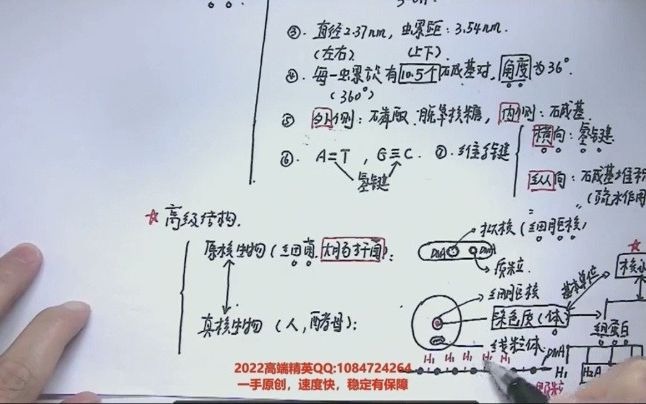 ③. 直径2.37nm, 螺距: 3.54nm.
(左右) (上下)
④. 每一螺旋有10.5个碱基对, 角度为36°.
(360°)
⑤ 外侧: 磷酸、脱氧核糖, 内侧: 碱基.
⑥. A=T, G≡C. ⑦. 维持键
氢键
横向: 氢键
纵向: 碱基堆积
(疏水作用
☆ 高级结构.
原核生物 (细菌. 大肠杆菌):
DNA DNA
拟核 (细胞核)
质粒.
真核生物 (人, 酵母):
细胞核
染色质 (体)
线粒体.
基本单位
核小
组蛋白
DNA
H₁ H₁ H₁ H₁ H₁
H₁ H2A
2022高端精英QQ:1084724264
一手原创，速度快，稳定有保障